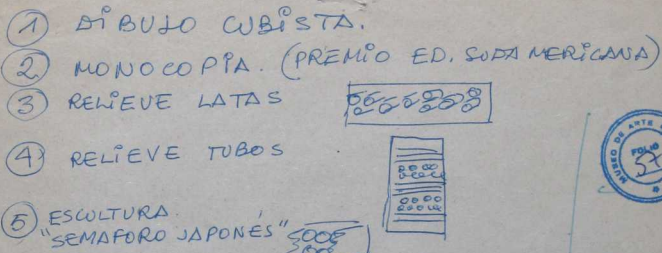 1 DIBUJO CUBISTA.
2 MONOCOPIA. (PREMIO ED. SUDAMERICANA)
3 RELIEVE LATAS
4 RELIEVE TUBOS
5 ESCULTURA.
"SEMAFORO JAPONÉS"
MUSEO DE ARTE
FOLIO
57